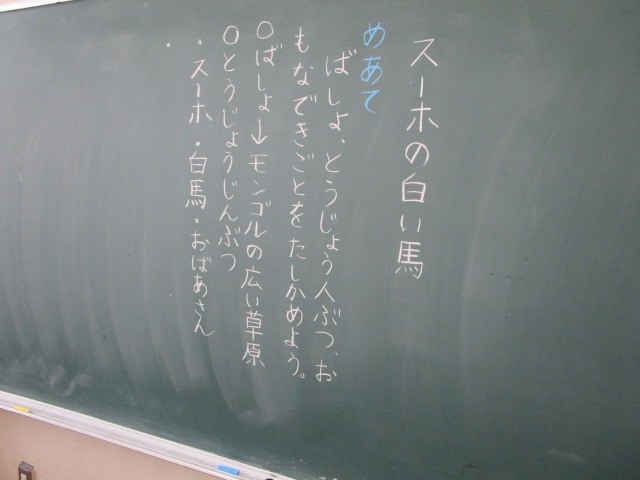 スーホの白い馬
めあて
ばしょ、とうじょう人ぶつ、お
もなできごとをたしかめよう。
○ばしょ→モンゴルの広い草原
○とうじょうじんぶつ
・スーホ・白馬・おばあさん
・